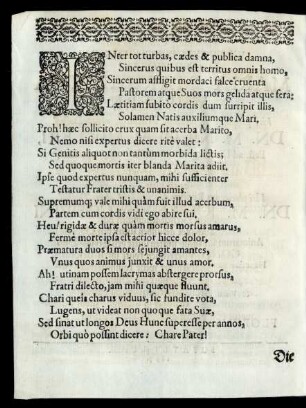 INter tot turbas, cædes & publica damna,
Sincerus quibus est territus omnis homo,
Sincerum affligit mordaci falce cruenta
Pastorem atque Suos mors gelida atque fera:
Lætitiam subitò cordis dum surripit illis,
Solamen Natis auxiliumque Mari,
Proh! hæc sollicito crux quam sit acerba Marito,
Nemo nisi expertus dicere ritè valet:
Si Genitis aliquot non tantùm morbida lictis;
Sed quoque mortis iter blanda Marita adiit.
Ipse quod expertus nunquam, mihi sufficienter
Testatur Frater tristis & unanimis.
Supremumq; vale mihi quàm fuit illud acerbum,
Partem cum cordis vidi ego abire sui,
Heu! rigidæ & duræ quàm mortis morsus amarus,
Fermè morte ipsa est acrior hicce dolor,
Præmatura duos si mors sejungit amantes,
Vnus quos animus junxit & unus amor.
Ah! utinam possem lacrymas abstergere prorsus,
Fratri dilecto, jam mihi quæque fluunt.
Chari queis charus viduus, sic fundite vota,
Lugens, ut videat non quoque fata Suæ,
Sed sinat ut longos Deus Hunc superesse per annos,
Orbi quò possint dicere: Chare Pater!
Die